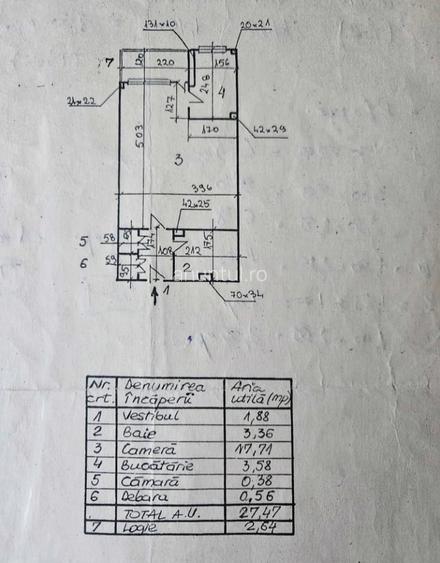 131x10
20x21
7
120
220
156
248
4
21x22
127
503
170
42x29
3
396
42x25
5
58
65
174
109
212
175
6
59
95
2
anuntul.ro
1
70x34
Nr. crt. Denumirea încăperii Aria utilă (mp)
1 Vestibul 1,88
2 Baie 3,36
3 Cameră 17,71
4 Bucătărie 3,58
5 Cămară 0,38
6 Debara 0,56
. TOTAL A.U. 27,47
7 Logie 2,64